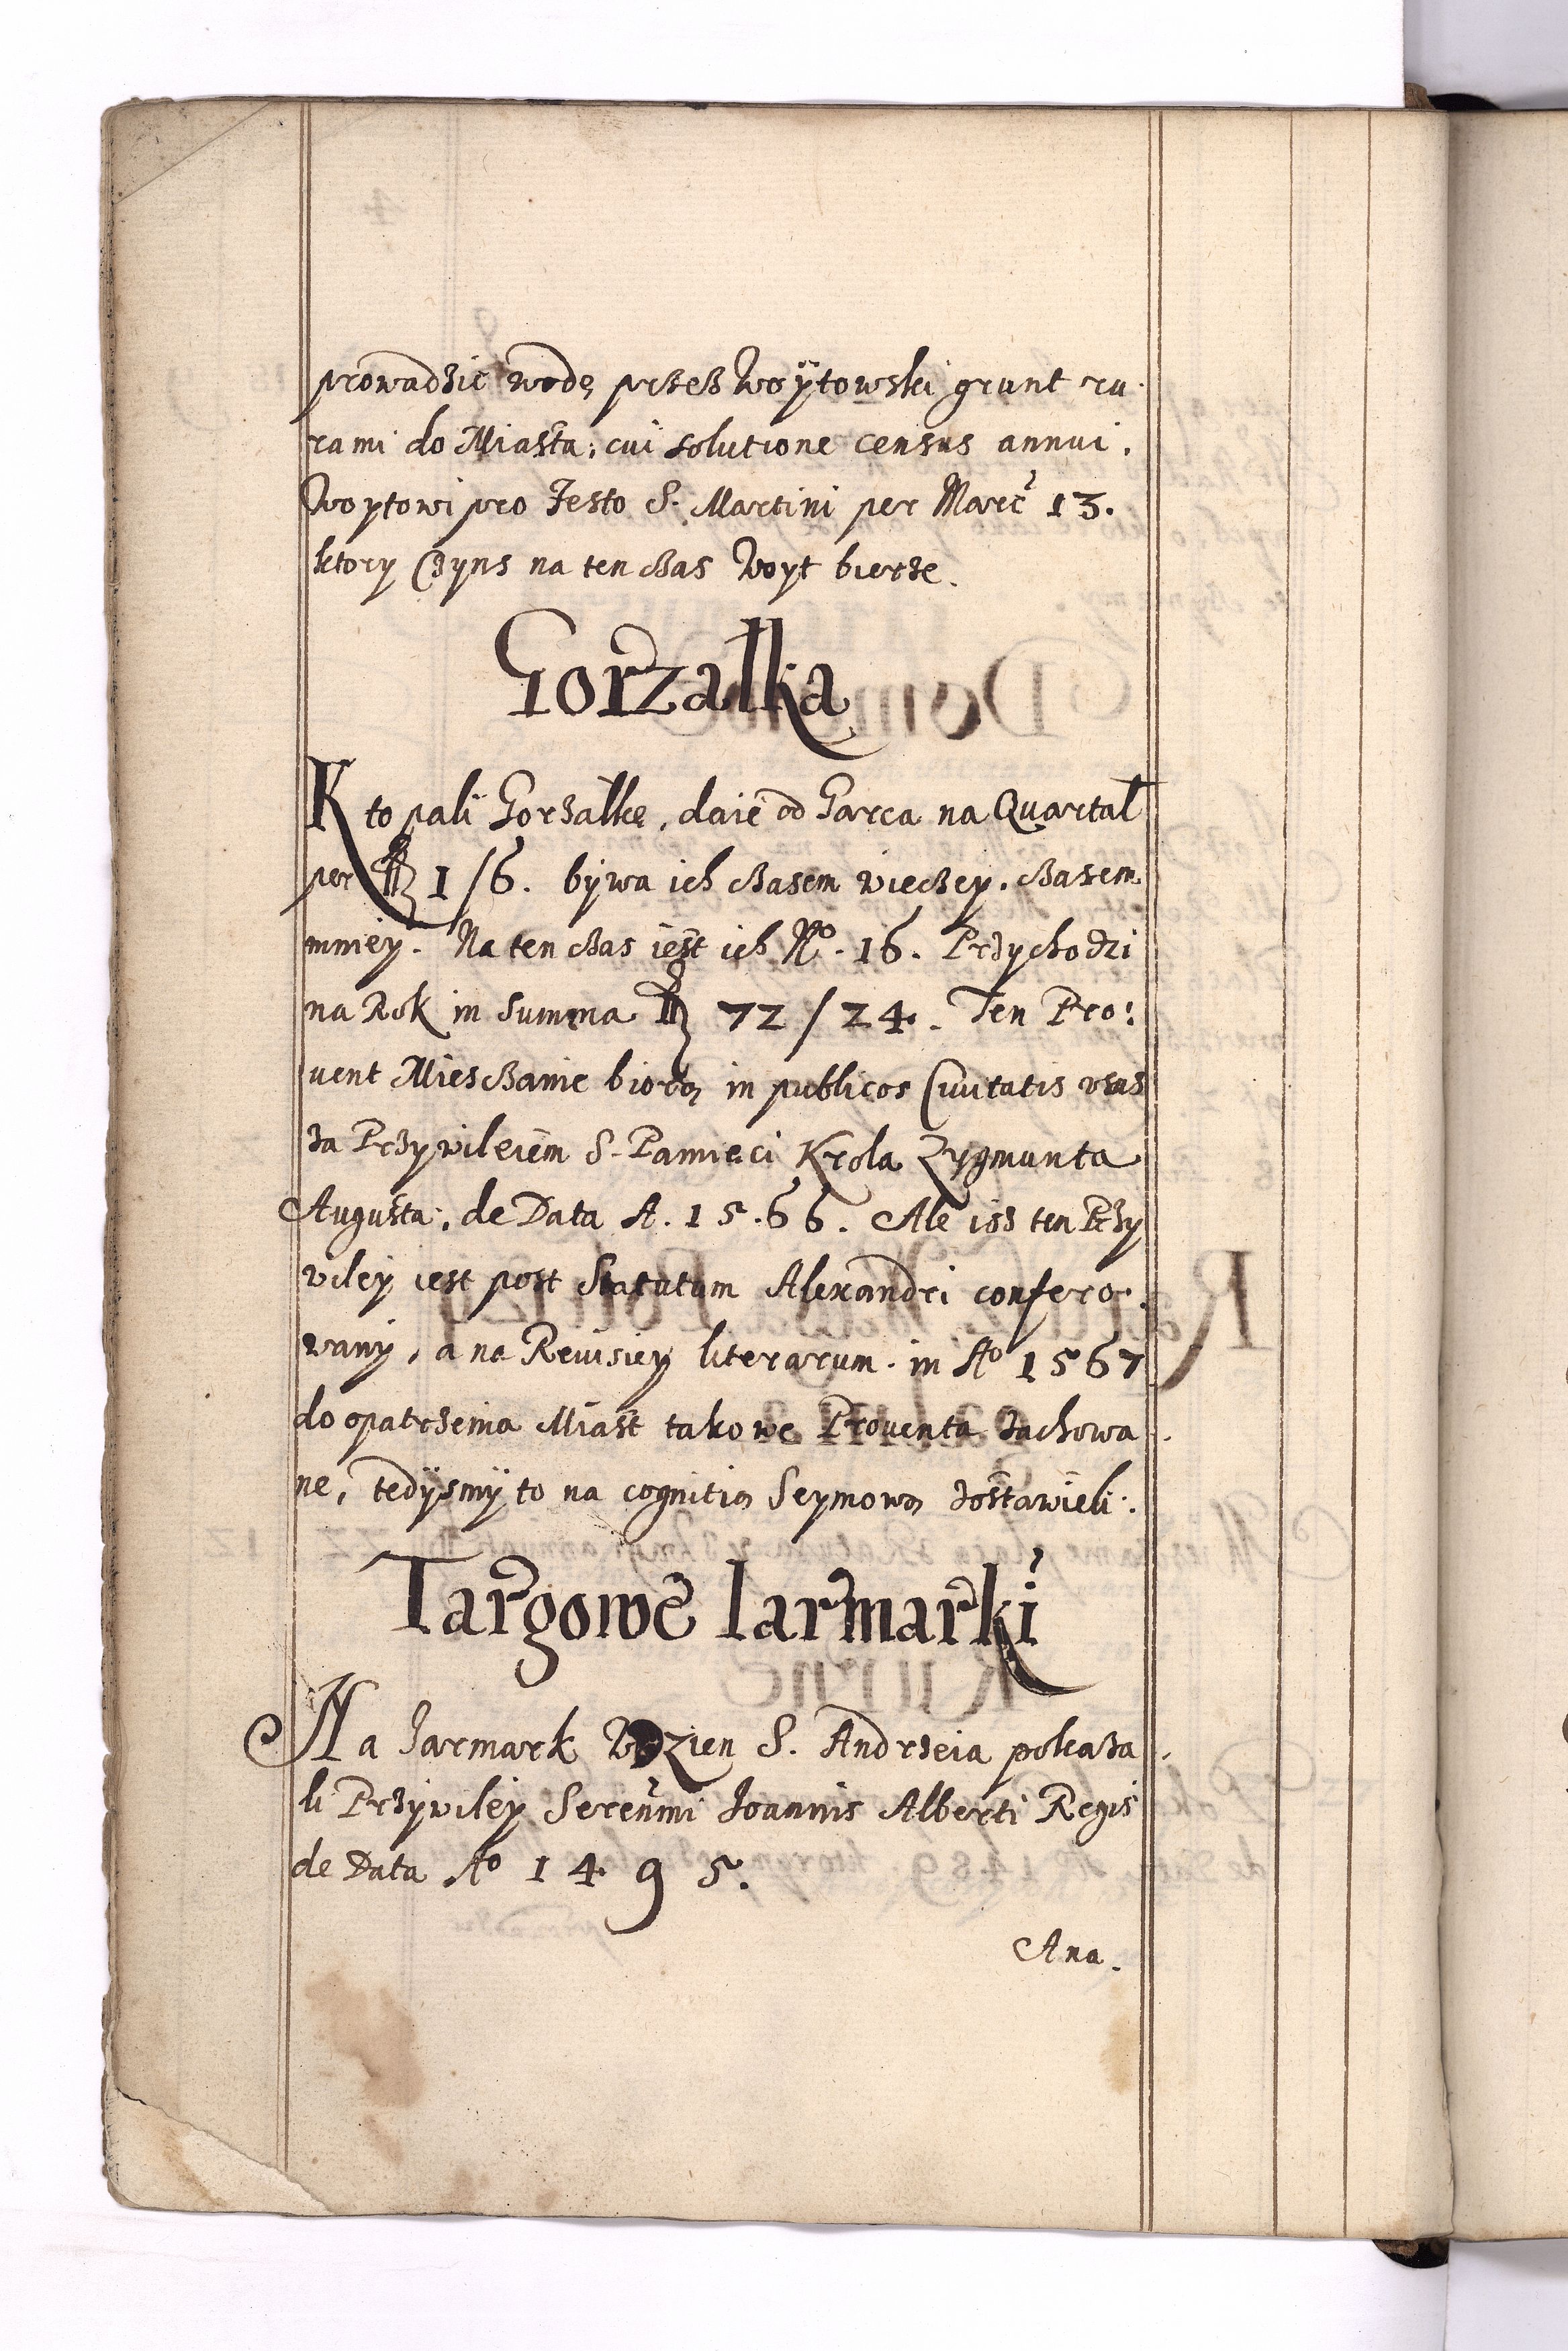 prowadzic wodę przez Woÿtowski grunt ru.
rami do Miasta, cui solutione census annui.
Woytowi pro Festo S. Martini per Marc 13.
ktory Czyns na ten czas Woyt bierze.
Gorzalka
Kto pali Gorzalkę, daie od Garca na Quartal
per fl 1/6. bÿwa ich czasem wieczey, czasem
mniey. Na ten czas iest ich No. 16. Przychodzi
na Rok in Summa fl 72/24. Ten Pro:
uent Mieszczanie biorą in publicos Ciuitatis usus
za Przywileiem S. Pamięci Krola Zygmunta
Augusta, de Data A. 15.66. Ale isz ten Przy
viley iest post Statutum Alexandri confero.
vany, a na Reuisiey literarum in Ao 1567
do opatrzenia Miast takowe Prouenta zachowa.
ne, tedÿsmÿ to na cognitią Seymową zostawieli.
Targowe Iarmarki
Na Iarmark W Dzien S. Andrzeia pokaza.
li Przywiley Serenmi Ioannis Alberti Regis
de Data Ao 1495.
Ana.